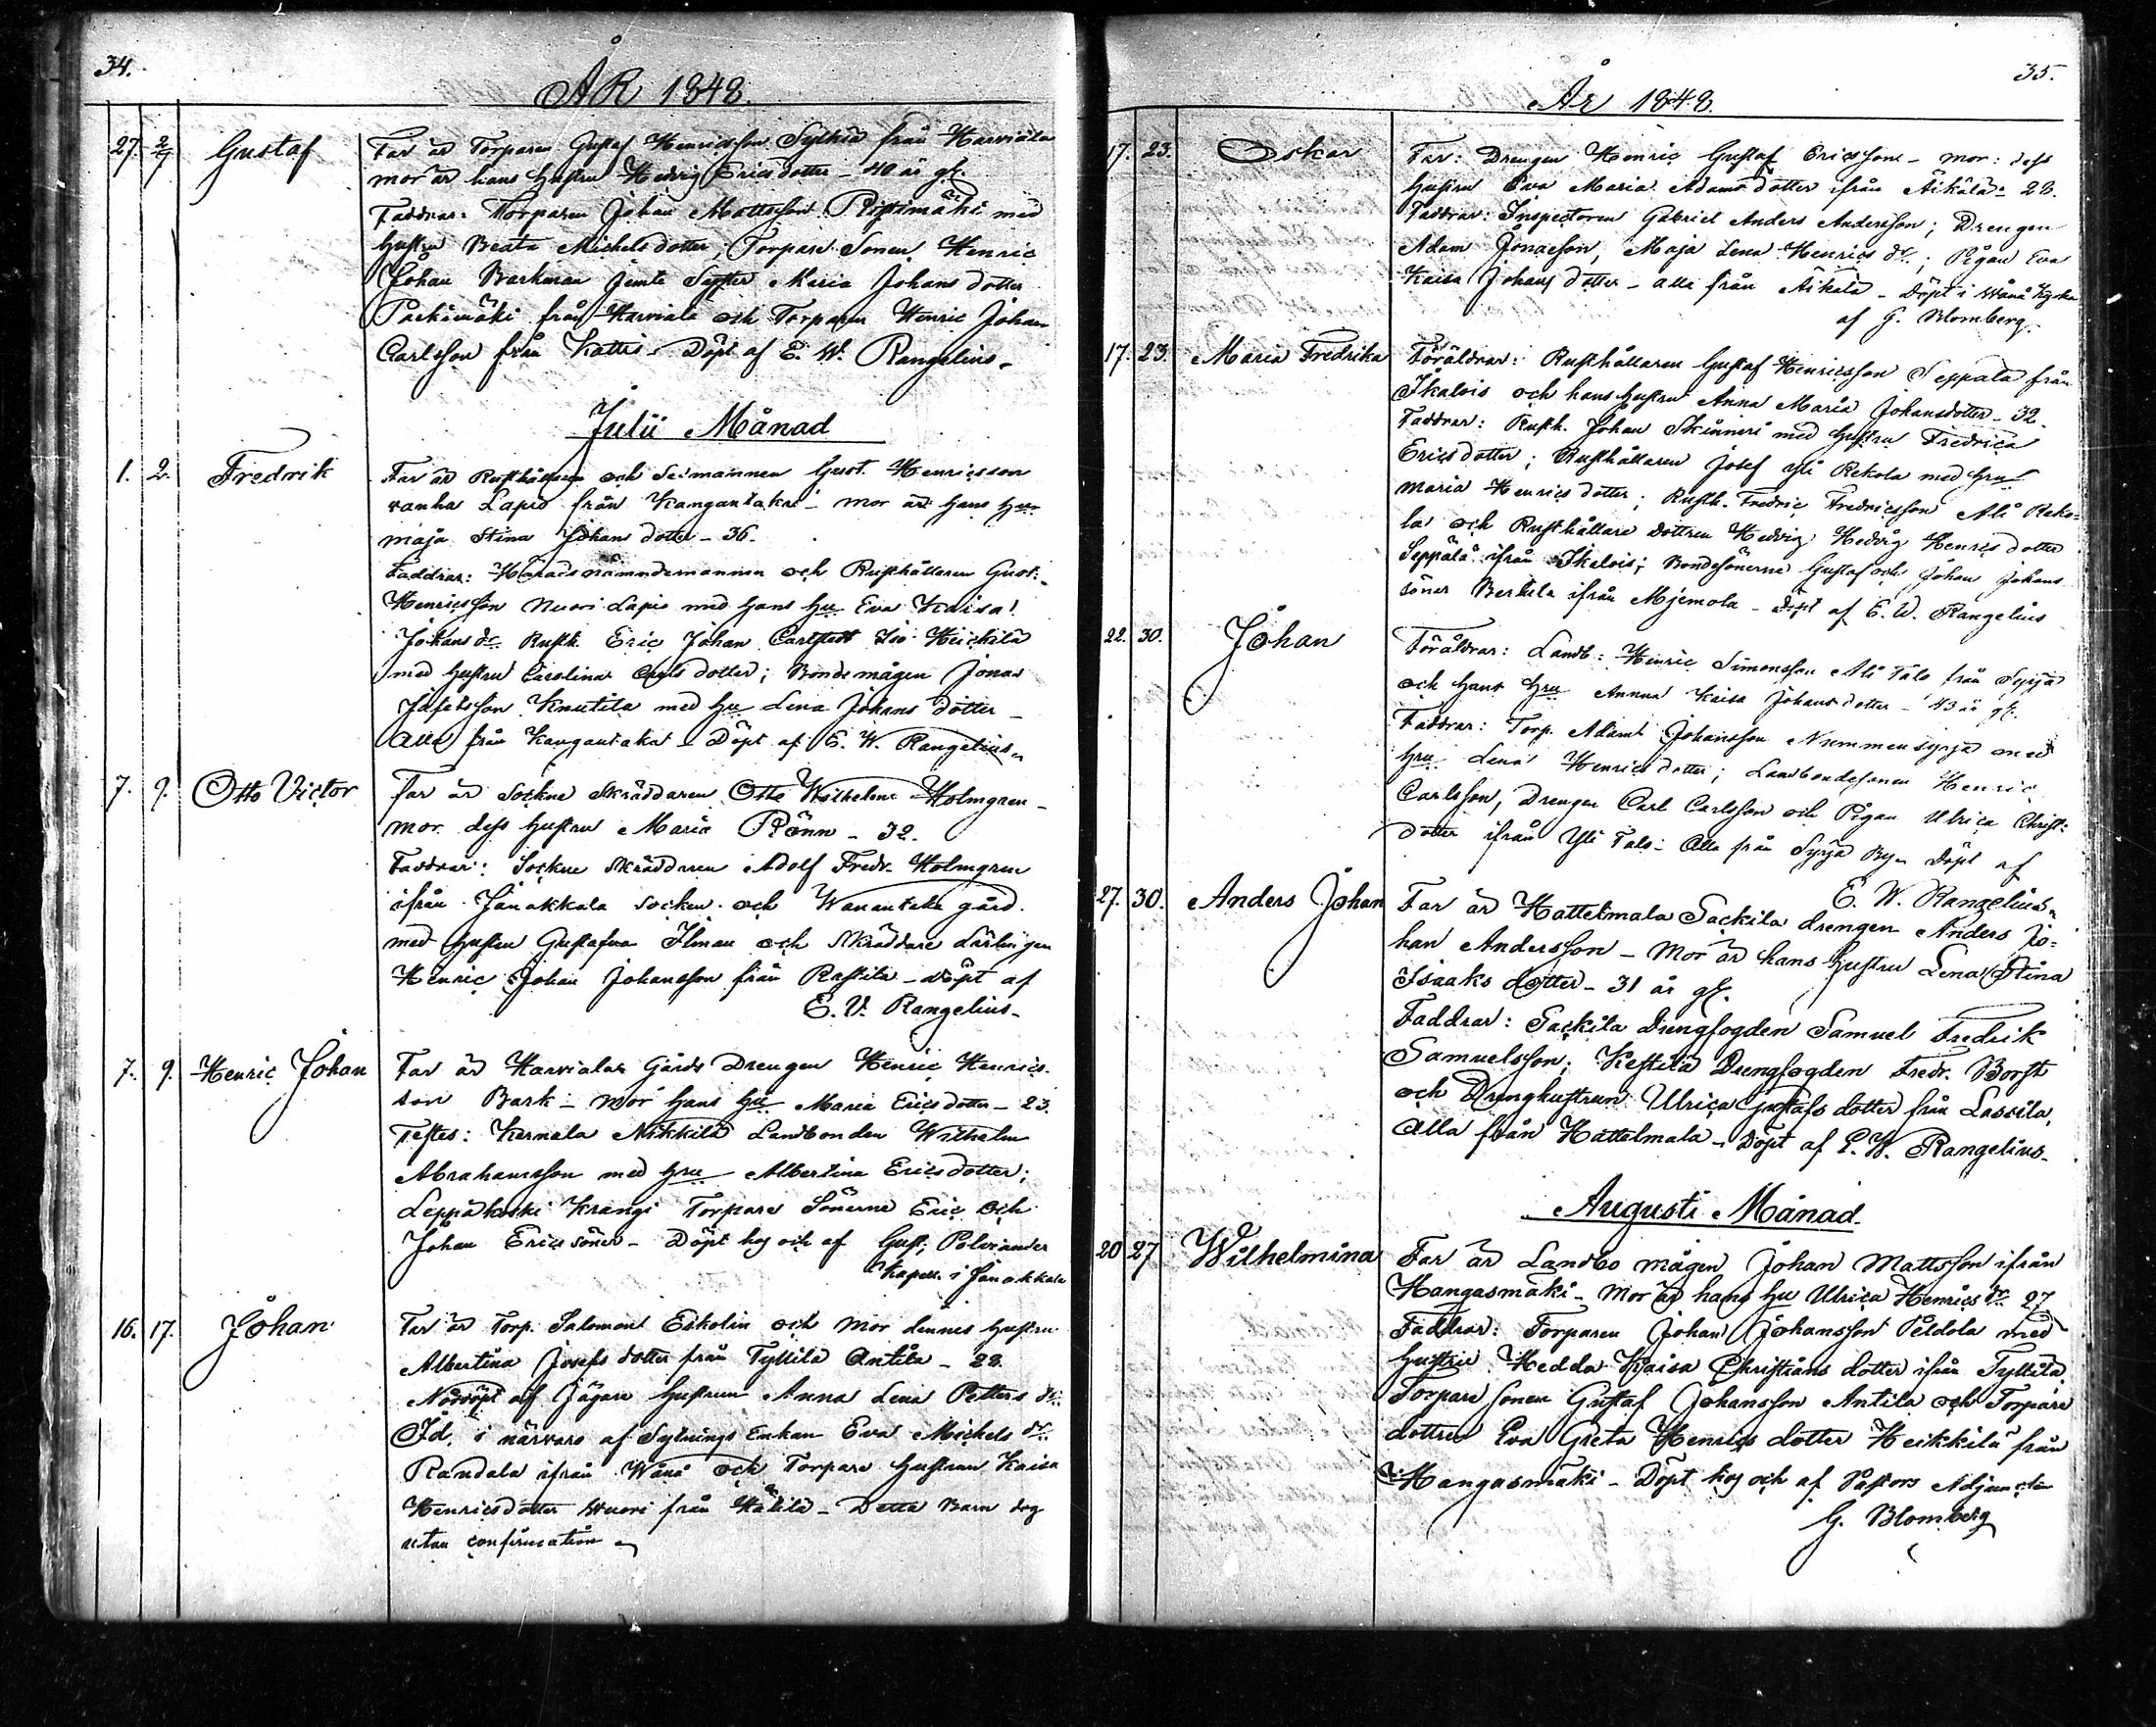 34.
ÅR 1848.
27. 2/7 Gustaf Far är Torparen Gustaf Henricsson Sylkiä från Harviala
mor är hans hustru Hedvig Erics dotter - 40 år gl.
Faddrar: Torparen Johan Mattsson Ristimäki med
hustru Beata Michels dotter; Torpare Sonen Henric
Johan Barkman jemte Syster Maria Johans dotter
från Harviala och Torparen Henric Johan
Carlsson från Kattis - Döpt af E. W. Rangelius.
Julii Månad
1. 2. Fredrik Far är Rusthållaren och Gust. Henricsson
vanha Lapio från Kangantaka - mor är hans hu
maja Stina Johans dotter - 36.
Faddrar: Häradsnämndemannen och Rusthållaren Gust.
Henricsson Nuori Lapio med hans hu Eva Kaisa
Johans dr Rusth. Eric Johan Carlstedt Iso Heickilä
med hustru Carolina Carls dotter; Bonde mågen Jonas
Knutila med hu Lena Johans dotter -
Alla från Kangantaka - Döpt af E. W. Rangelius.
7. 9. Otto Victor Far är Sockne Skräddaren Otto Wilhelm Holmgren -
mor dess hustru Maria Rönn - 32.
Faddrar: Sockne Skräddaren Adolf Fredr. Holmgren
ifrån Janakkala Socken och Wanantaka gård.
med hustru Gustafva Ilman och Skräddare Lärlingen
Henric Johan Johansson från Rastila - Döpt af
E. W. Rangelius -
7. 9. Henric Johan Far är Harviala Gårds Drengen Henric Henrics-
son Bark - mor hans hu Maria Erics dotter - 23.
Testes: Kernala Nikkilä Landbonden Wilhelm
Abrahamsson med hru Albertina Erics dotter;
Leppäkoski Krangi Torpare Sönerne Eric och
Johan Erics söner - Döpt hos och af Gust. Polviander
Kapell. i Janakkala
16. 17. Johan Far är Torp. Salomon Eskolin och Mor dennes hustru
Albertina Josefs dotter från Tyllilä Antila - 28.
Nöddöpt af Jägare hustrun Anna Lena Petters dr
Id. i närvaro af Sytnings Enkan Eva Michels dr
Randala ifrån Wånå och Torpare hustrun Kaisa
Henricsdotter Wuori från - Detta Barn dog
utan confirmation
35.
År 1848.
17. 23. Oskar Far: Drengen Henric Gustaf Ericsson - mor: dess
hustru Eva Maria Adams dotter ifrån Äikälä - 28.
Faddrar: Inspectoren Gabriel Anders Andersson; Drengen
Adam Jonasson, Maja Lena Henrics dr; Pigan Eva
Kaisa Johans dotter - alla från Äikälä - Döpt i Wånå Kyrka
af G. Blomberg.
17. 23. Maria Fredrika Föräldrar: Rusthållaren Gustaf Henricsson Seppälä från
Ikalois och hans hustru Anna Maria Johansdotter - 32.
Faddrar: Rusth. Johan Skinnari med hustru Fredrica
Erics dotter; Rusthållaren Josef Yli Rekola med hru
Maria Henrics dotter; Rusth. Fredric Fredricsson Ali Reko-
la och Rusthållare Dottren Hedvig Hedvig Henrics dotter
Seppälä ifrån Ikalois; Bondesönerne Gustaf och Johan Johans
söner Bertula ifrån Mjemola - Döpt af E. W. Rangelius
22. 30. Johan Föräldrar: Landb: Henric Simonsson Ali Talo från Syrjä
och hans hru Annna Kaisa Johans dotter - 43 år gl.
Faddrar: Torp. Adam Johansson Nummensyrjä med
hru Lena Henrics dotter; Landbondesonen Henric
Carlsson, Drengen Carl Carlsson och Pigan Ulrica Christ:
dotter ifrån Yli Talo - Alla från Syrjä By - Döpt af
E. W. Rangelius.
27. 30. Anders Johan Far är Hattelmala Sackila drengen Anders Jo-
han Andersson - Mor är hans hustru Lena Stina
Isaaks dotter - 31 år gl.
Faddrar: Sackila Drengfogden Samuel Fredrik
Samuelsson; Kestilä Drengfogden Fredr. Borst
och Drenghustrun Ulrica Gustafs dotter från Lassila,
Alla från Hattelmala - Döpt af E. W. Rangelius -
Augusti Månad
20 27 Wilhelmina Far är Landbo mågen Johan Mattsson ifrån
Hangasmäki - Mor är hans hu Ulrica Henrics dr 27
Faddrar: Torparen Johan Johansson Peldola med
hustru Hedda Kaisa Christians dotter ifrån Tyllilä
Torpare Sonen Gustaf Johansson Antila och Torpare
dottren Eva Greta Henrics dotter Heikkilä från
Hangasmäki - Döpt hos och af Pastors Adjuncten
G. Blomberg